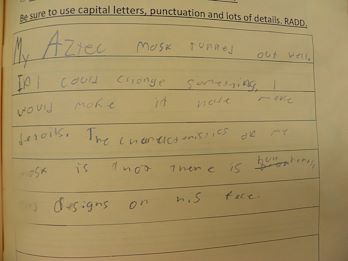 Be sure to use capital letters, punctuation and lots of details. RADD.
My Aztec mask turned out well.
If I could change something, I
would make it have more
details. The characteristics of me
mask is that there is
designs on his face.